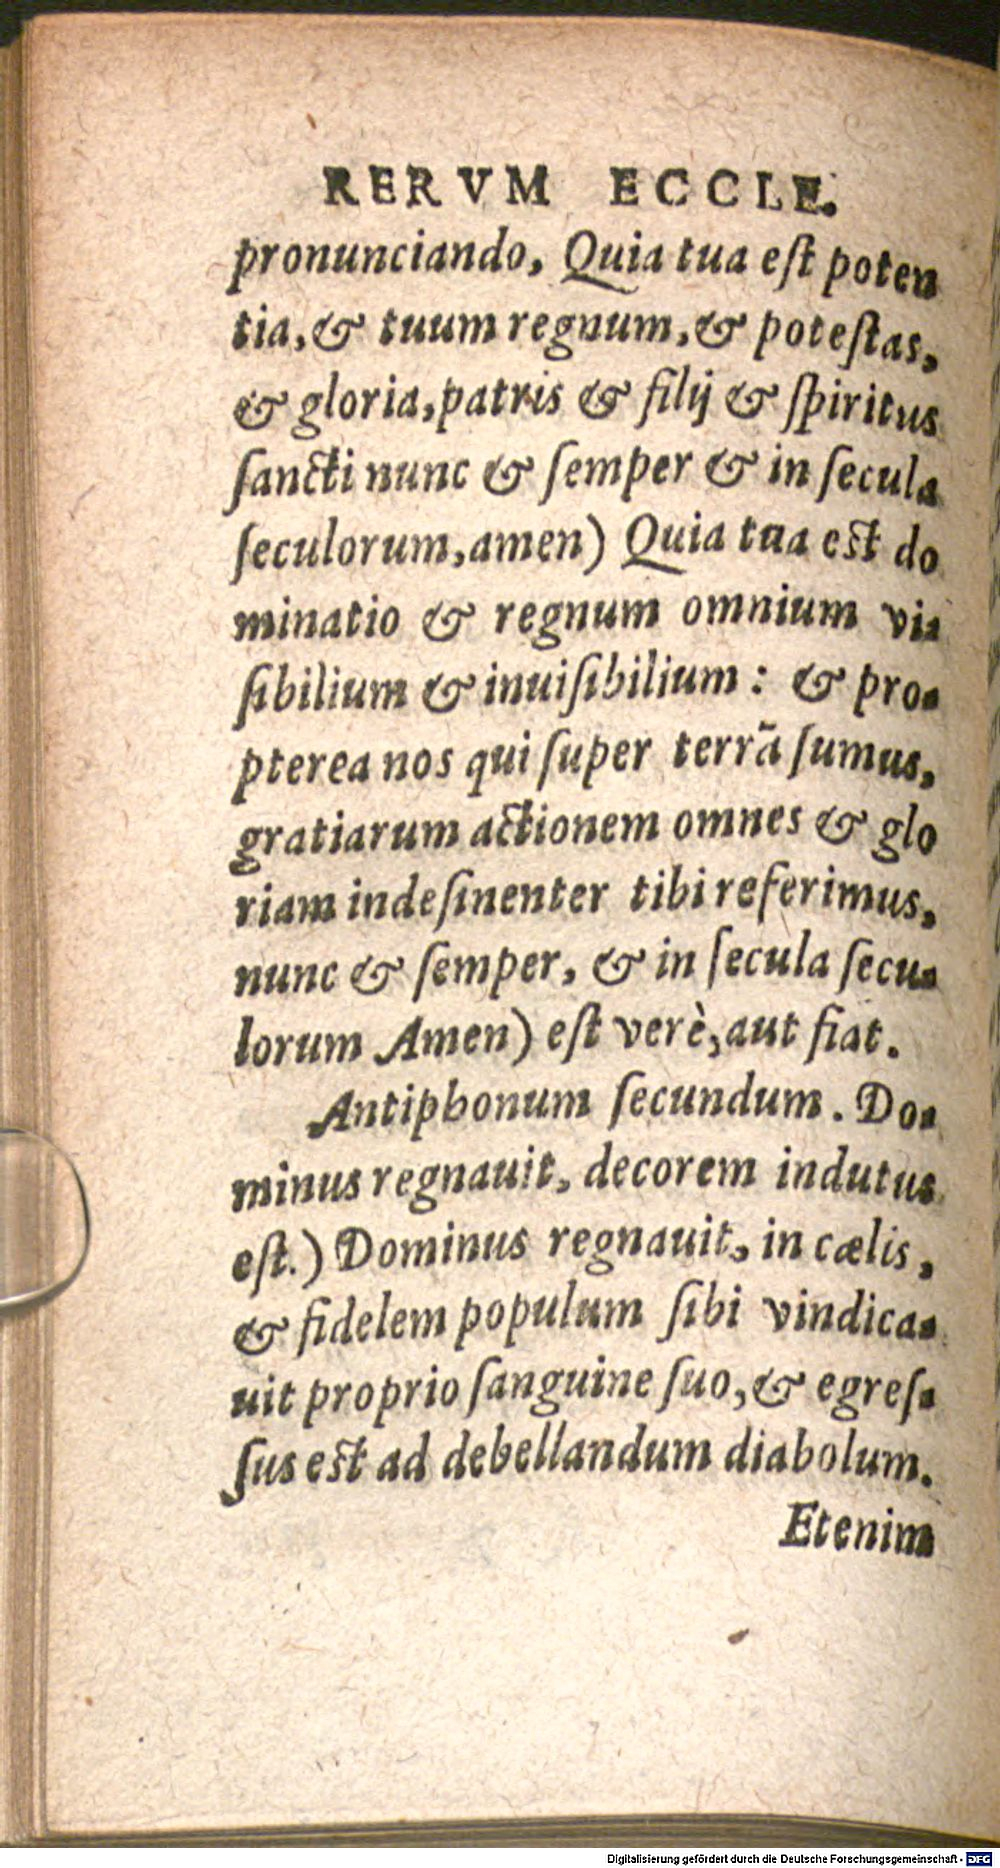 RERVM ECCLE.
pronunciando, Quia tua eſt poten
tia, & tuum regnum, & poteſtas,
& gloria, patris & filij & ſpiritus
ſancti nunc & ſemper & in ſecula
ſeculorum, amen) Quia tua eſt do
minatio & regnum omnium vi-
ſibilium & inuiſibilium: & pro-
pterea nos qui ſuper terrã ſumus,
gratiarum actionem omnes & glo
riam indeſinenter tibi referimus,
nunc & ſemper, & in ſecula ſecu-
lorum Amen) eſt verè, aut fiat.
Antiphonum ſecundum. Do-
minus regnauit, decorem indutus
eſt.) Dominus regnauit, in cælis,
& fidelem populum ſibi vindica-
uit proprio ſanguine ſuo, & egreſ-
ſus eſt ad debellandum diabolum.
Etenim
Digitalisierung gefördert durch die Deutsche Forschungsgemeinschaft - DFG